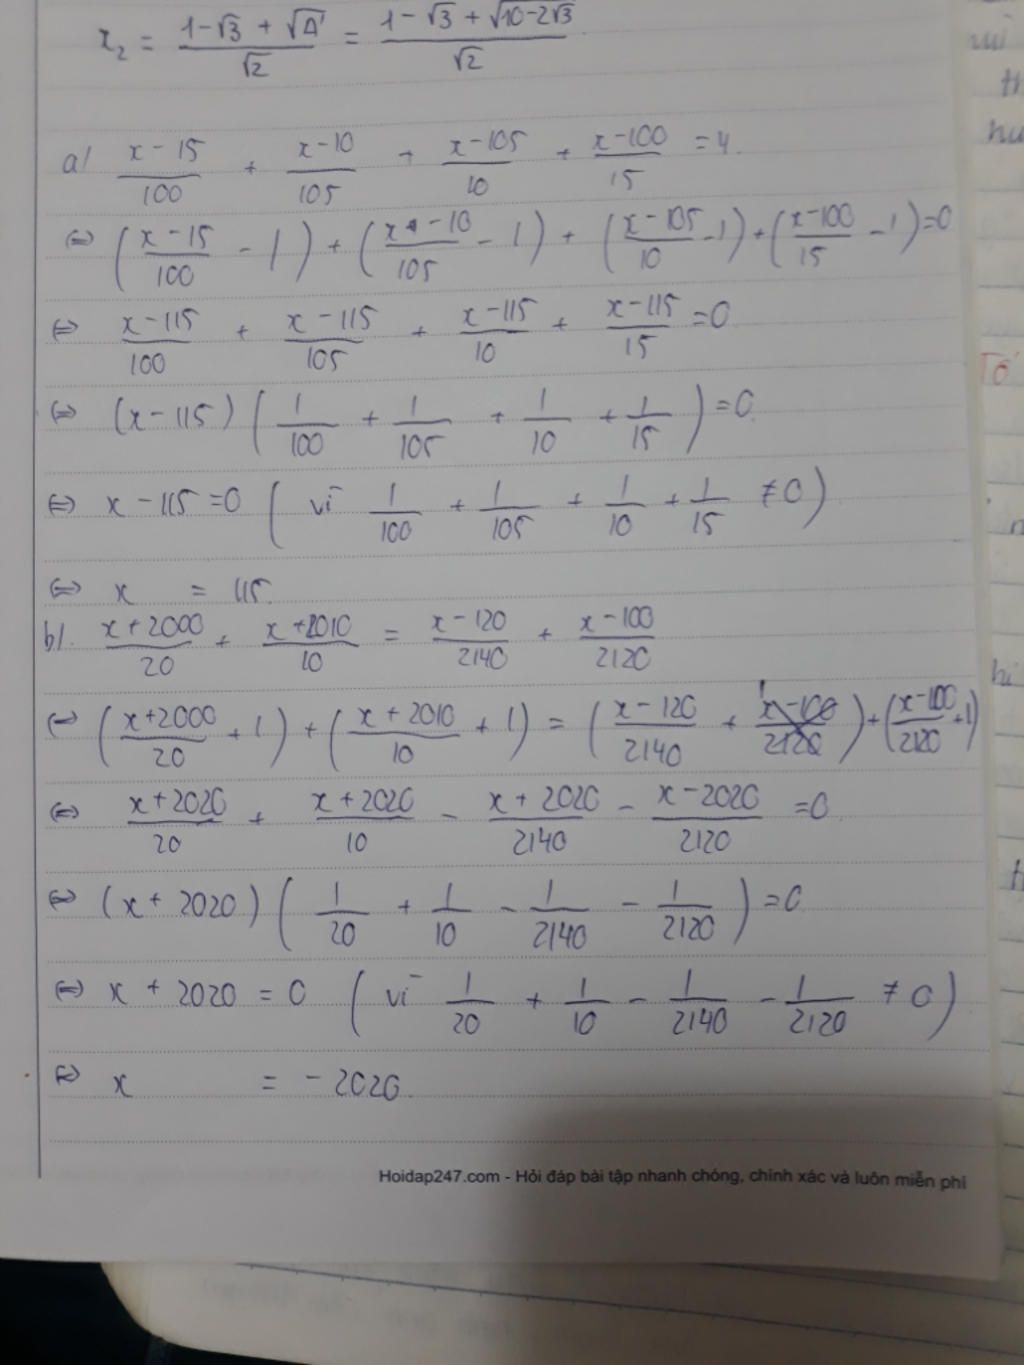 x₂ = (1-√3 + √Δ')/√2 = (1-√3 + √(10-2√3))/√2
a/ (x-15)/100 + (x-10)/105 + (x-105)/10 + (x-100)/15 = 4.
⇔ ((x-15)/100 - 1) + ((x-10)/105 - 1) + ((x-105)/10 - 1) + ((x-100)/15 - 1) = 0
⇔ (x-115)/100 + (x-115)/105 + (x-115)/10 + (x-115)/15 = 0
⇔ (x-115) (1/100 + 1/105 + 1/10 + 1/15) = 0.
⇔ x - 115 = 0 (vì 1/100 + 1/105 + 1/10 + 1/15 ≠ 0)
⇔ x = 115.
b/. (x+2000)/20 + (x+2010)/10 = (x-120)/2140 + (x-100)/2120
⇔ ((x+2000)/20 + 1) + ((x+2010)/10 + 1) = ((x-120)/2140 + 1) + ((x-100)/2120 + 1)
⇔ (x+2020)/20 + (x+2020)/10 - (x+2020)/2140 - (x-2020)/2120 = 0.
⇔ (x+2020) (1/20 + 1/10 - 1/2140 - 1/2120) = 0
⇔ x + 2020 = 0 (vì 1/20 + 1/10 - 1/2140 - 1/2120 ≠ 0)
⇔ x = -2020.
Hoidap247.com - Hỏi đáp bài tập nhanh chóng, chính xác và luôn miễn phí